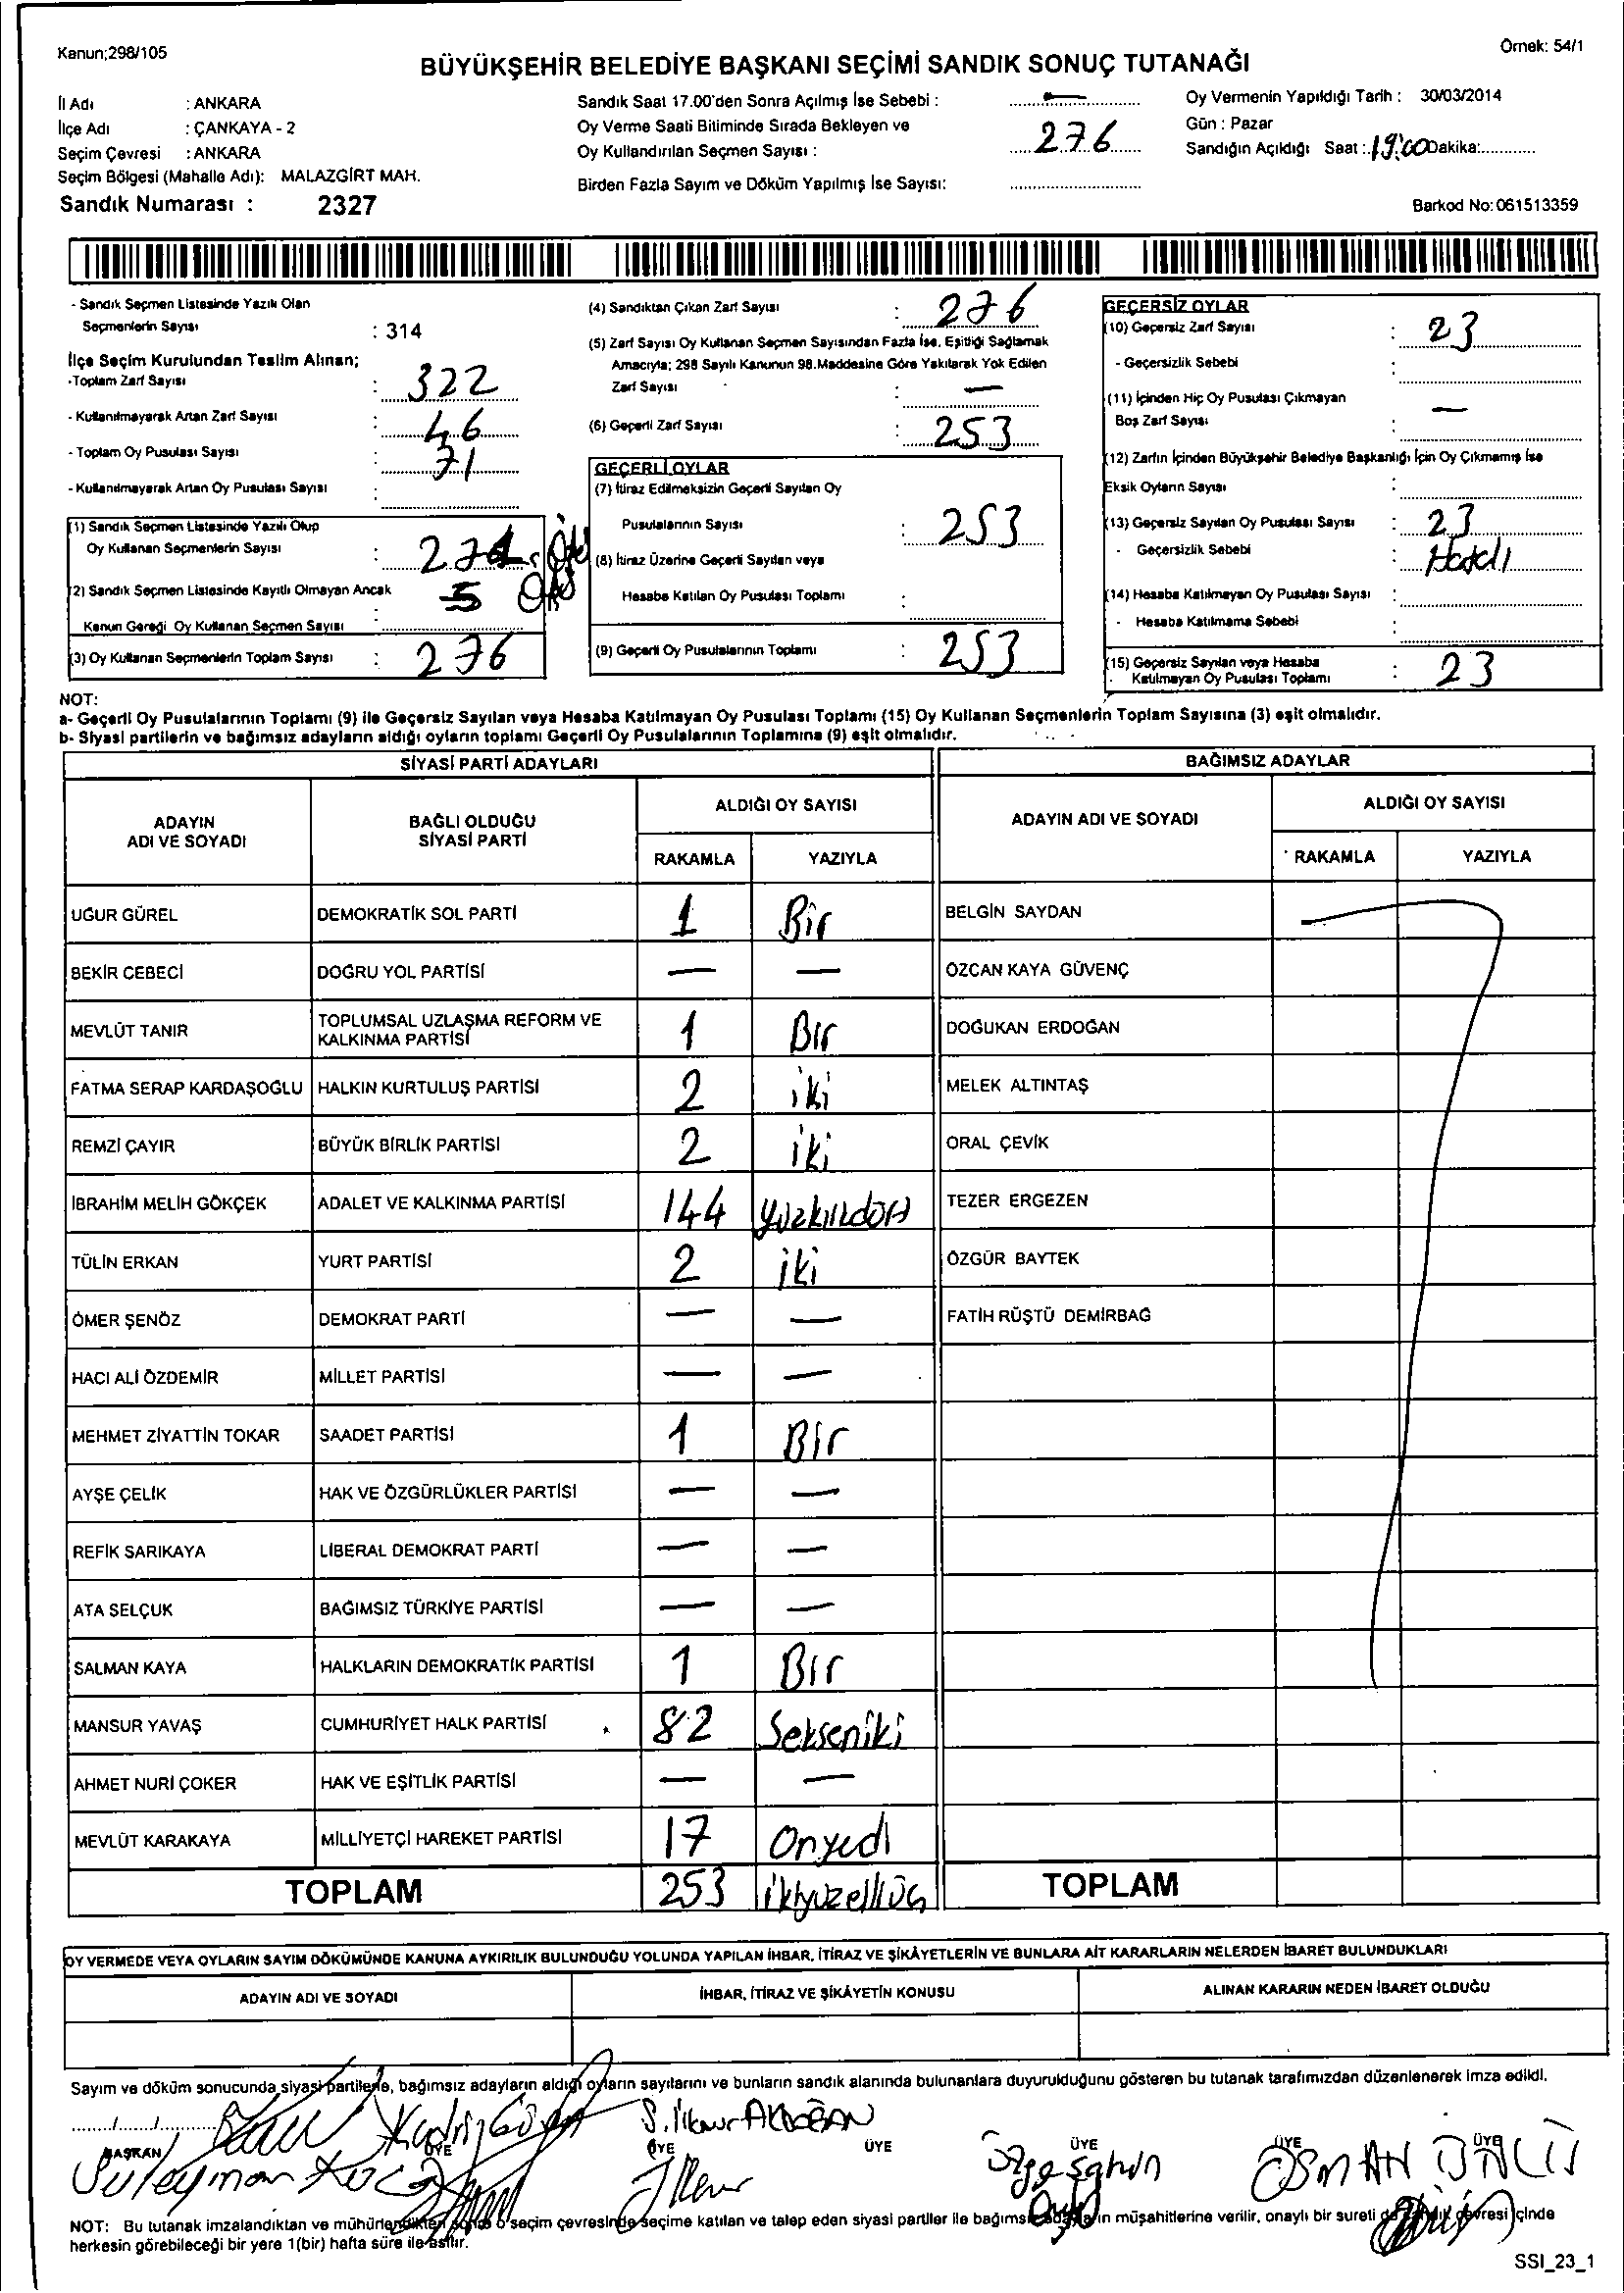 Kanun;298/105
Örnek: 54/1
BÜYÜKŞEHİR BELEDİYE BAŞKANI SEÇİMİ SANDIK SONUÇ TUTANAĞI
İl Adı : ANKARA
İlçe Adı : ÇANKAYA - 2
Seçim Çevresi : ANKARA
Seçim Bölgesi (Mahalle Adı): MALAZGİRT MAH.
Sandık Numarası : 2327
Sandık Saat 17.00'den Sonra Açılmış İse Sebebi : —
Oy Verme Saati Bitiminde Sırada Bekleyen ve
Oy Kullandırılan Seçmen Sayısı : 276
Birden Fazla Sayım ve Döküm Yapılmış İse Sayısı:
Oy Vermenin Yapıldığı Tarih : 30/03/2014
Gün : Pazar
Sandığın Açıldığı Saat : 19:00 Dakika:
Barkod No: 061513359
- Sandık Seçmen Listesinde Yazılı Olan
Seçmenlerin Sayısı : 314
İlçe Seçim Kurulundan Teslim Alınan;
-Toplam Zarf Sayısı : 322
- Kullanılmayarak Artan Zarf Sayısı : 46
- Toplam Oy Pusulası Sayısı : 71
- Kullanılmayarak Artan Oy Pusulası Sayısı :
(1) Sandık Seçmen Listesinde Yazılı Olup
Oy Kullanan Seçmenlerin Sayısı : 271
(2) Sandık Seçmen Listesinde Kayıtlı Olmayan Ancak
5
Kanun Gereği Oy Kullanan Seçmen Sayısı :
(3) Oy Kullanan Seçmenlerin Toplam Sayısı : 276
(4) Sandıktan Çıkan Zarf Sayısı : 276
(5) Zarf Sayısı Oy Kullanan Seçmen Sayısından Fazla İse, Eşitliği Sağlamak
Amacıyla; 298 Sayılı Kanunun 98.Maddesine Göre Yakılarak Yok Edilen
Zarf Sayısı : —
(6) Geçerli Zarf Sayısı : 253
GEÇERLİ OYLAR
(7) İtiraz Edilmeksizin Geçerli Sayılan Oy
Pusulalarının Sayısı : 253
(8) İtiraz Üzerine Geçerli Sayılan veya
Hesaba Katılan Oy Pusulası Toplamı :
(9) Geçerli Oy Pusulalarının Toplamı : 253
GEÇERSİZ OYLAR
(10) Geçersiz Zarf Sayısı : 23
- Geçersizlik Sebebi :
(11) İçinden Hiç Oy Pusulası Çıkmayan
Boş Zarf Sayısı : —
(12) Zarfın İçinden Büyükşehir Belediye Başkanlığı İçin Oy Çıkmamış İse
Eksik Oyların Sayısı :
(13) Geçersiz Sayılan Oy Pusulası Sayısı : 23
- Geçersizlik Sebebi : Hatalı
(14) Hesaba Katılmayan Oy Pusulası Sayısı :
- Hesaba Katılmama Sebebi :
(15) Geçersiz Sayılan veya Hesaba
Katılmayan Oy Pusulası Toplamı : 23
NOT:
a- Geçerli Oy Pusulalarının Toplamı (9) ile Geçersiz Sayılan veya Hesaba Katılmayan Oy Pusulası Toplamı (15) Oy Kullanan Seçmenlerin Toplam Sayısına (3) eşit olmalıdır.
b- Siyasi partilerin ve bağımsız adayların aldığı oyların toplamı Geçerli Oy Pusulalarının Toplamına (9) eşit olmalıdır.
SİYASİ PARTİ ADAYLARI
ADAYIN ADI VE SOYADI
BAĞLI OLDUĞU SİYASİ PARTİ
ALDIĞI OY SAYISI
RAKAMLA YAZIYLA
UĞUR GÜREL DEMOKRATİK SOL PARTİ 1 Bir
BEKİR CEBECİ DOĞRU YOL PARTİSİ — —
MEVLÜT TANIR TOPLUMSAL UZLAŞMA REFORM VE KALKINMA PARTİSİ 1 Bir
FATMA SERAP KARDAŞOĞLU HALKIN KURTULUŞ PARTİSİ 2 iki
REMZİ ÇAYIR BÜYÜK BİRLİK PARTİSİ 2 iki
İBRAHİM MELİH GÖKÇEK ADALET VE KALKINMA PARTİSİ 144 yüzkırkdört
TÜLİN ERKAN YURT PARTİSİ 2 iki
ÖMER ŞENÖZ DEMOKRAT PARTİ — —
HACI ALİ ÖZDEMİR MİLLET PARTİSİ — —
MEHMET ZİYATTİN TOKAR SAADET PARTİSİ 1 Bir
AYŞE ÇELİK HAK VE ÖZGÜRLÜKLER PARTİSİ — —
REFİK SARIKAYA LİBERAL DEMOKRAT PARTİ — —
ATA SELÇUK BAĞIMSIZ TÜRKİYE PARTİSİ — —
SALMAN KAYA HALKLARIN DEMOKRATİK PARTİSİ 1 Bir
MANSUR YAVAŞ CUMHURİYET HALK PARTİSİ 82 Sekseniki
AHMET NURİ ÇOKER HAK VE EŞİTLİK PARTİSİ — —
MEVLÜT KARAKAYA MİLLİYETÇİ HAREKET PARTİSİ 17 Onyedi
TOPLAM 253 ikiyüzelliüç
BAĞIMSIZ ADAYLAR
ADAYIN ADI VE SOYADI
ALDIĞI OY SAYISI
RAKAMLA YAZIYLA
BELGİN SAYDAN
ÖZCAN KAYA GÜVENÇ
DOĞUKAN ERDOĞAN
MELEK ALTINTAŞ
ORAL ÇEVİK
TEZER ERGEZEN
ÖZGÜR BAYTEK
FATİH RÜŞTÜ DEMİRBAĞ
TOPLAM
OY VERMEDE VEYA OYLARIN SAYIM DÖKÜMÜNDE KANUNA AYKIRILIK BULUNDUĞU YOLUNDA YAPILAN İHBAR, İTİRAZ VE ŞİKÂYETLERİN VE BUNLARA AİT KARARLARIN NELERDEN İBARET BULUNDUKLARI
ADAYIN ADI VE SOYADI
İHBAR, İTİRAZ VE ŞİKÂYETİN KONUSU
ALINAN KARARIN NEDEN İBARET OLDUĞU
Sayım ve döküm sonucunda siyasi partilerle, bağımsız adayların aldığı oyların sayılarını ve bunların sandık alanında bulunanlara duyurulduğunu gösteren bu tutanak tarafımızdan düzenlenerek imza edildi.
BAŞKAN ÜYE ÜYE ÜYE ÜYE ÜYE ÜYE
Süleyman
Özge Şahin
OSMAN
NOT: Bu tutanak imzalandıktan ve mühürlendikten sonra o seçim çevresinde seçime katılan ve talep eden siyasi partiler ile bağımsız adayların müşahitlerine verilir, onaylı bir sureti de sandık çevresi içinde
herkesin görebileceği bir yere 1(bir) hafta süre ile asılır.
SSI_23_1